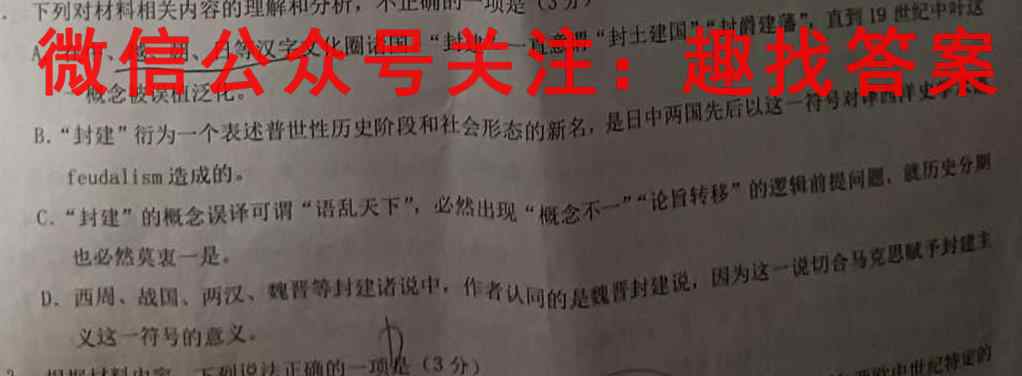 下列对材料相关内容的理解和分析，不正确的一项是（3分）
微信公众号关注：趣找答案
“封土建国”“封爵建藩”，直到19世纪中叶这
概念被误植泛化。
B.“封建”衍为一个表述普世性历史阶段和社会形态的新名，是日中两国先后以这一符号对译西洋史学
feudalism造成的。
C.“封建”的概念误译可谓“语乱天下”，必然出现“概念不一”“论旨转移”的逻辑前提问题，就历史分期
也必然莫衷一是。
D.西周、战国、两汉、魏晋等封建诸说中，作者认同的是魏晋封建说，因为这一说切合马克思赋予封建主
义这一符号的意义。
根据材料内容，下列说法正确的一项是（3分）
西欧中世纪特定的